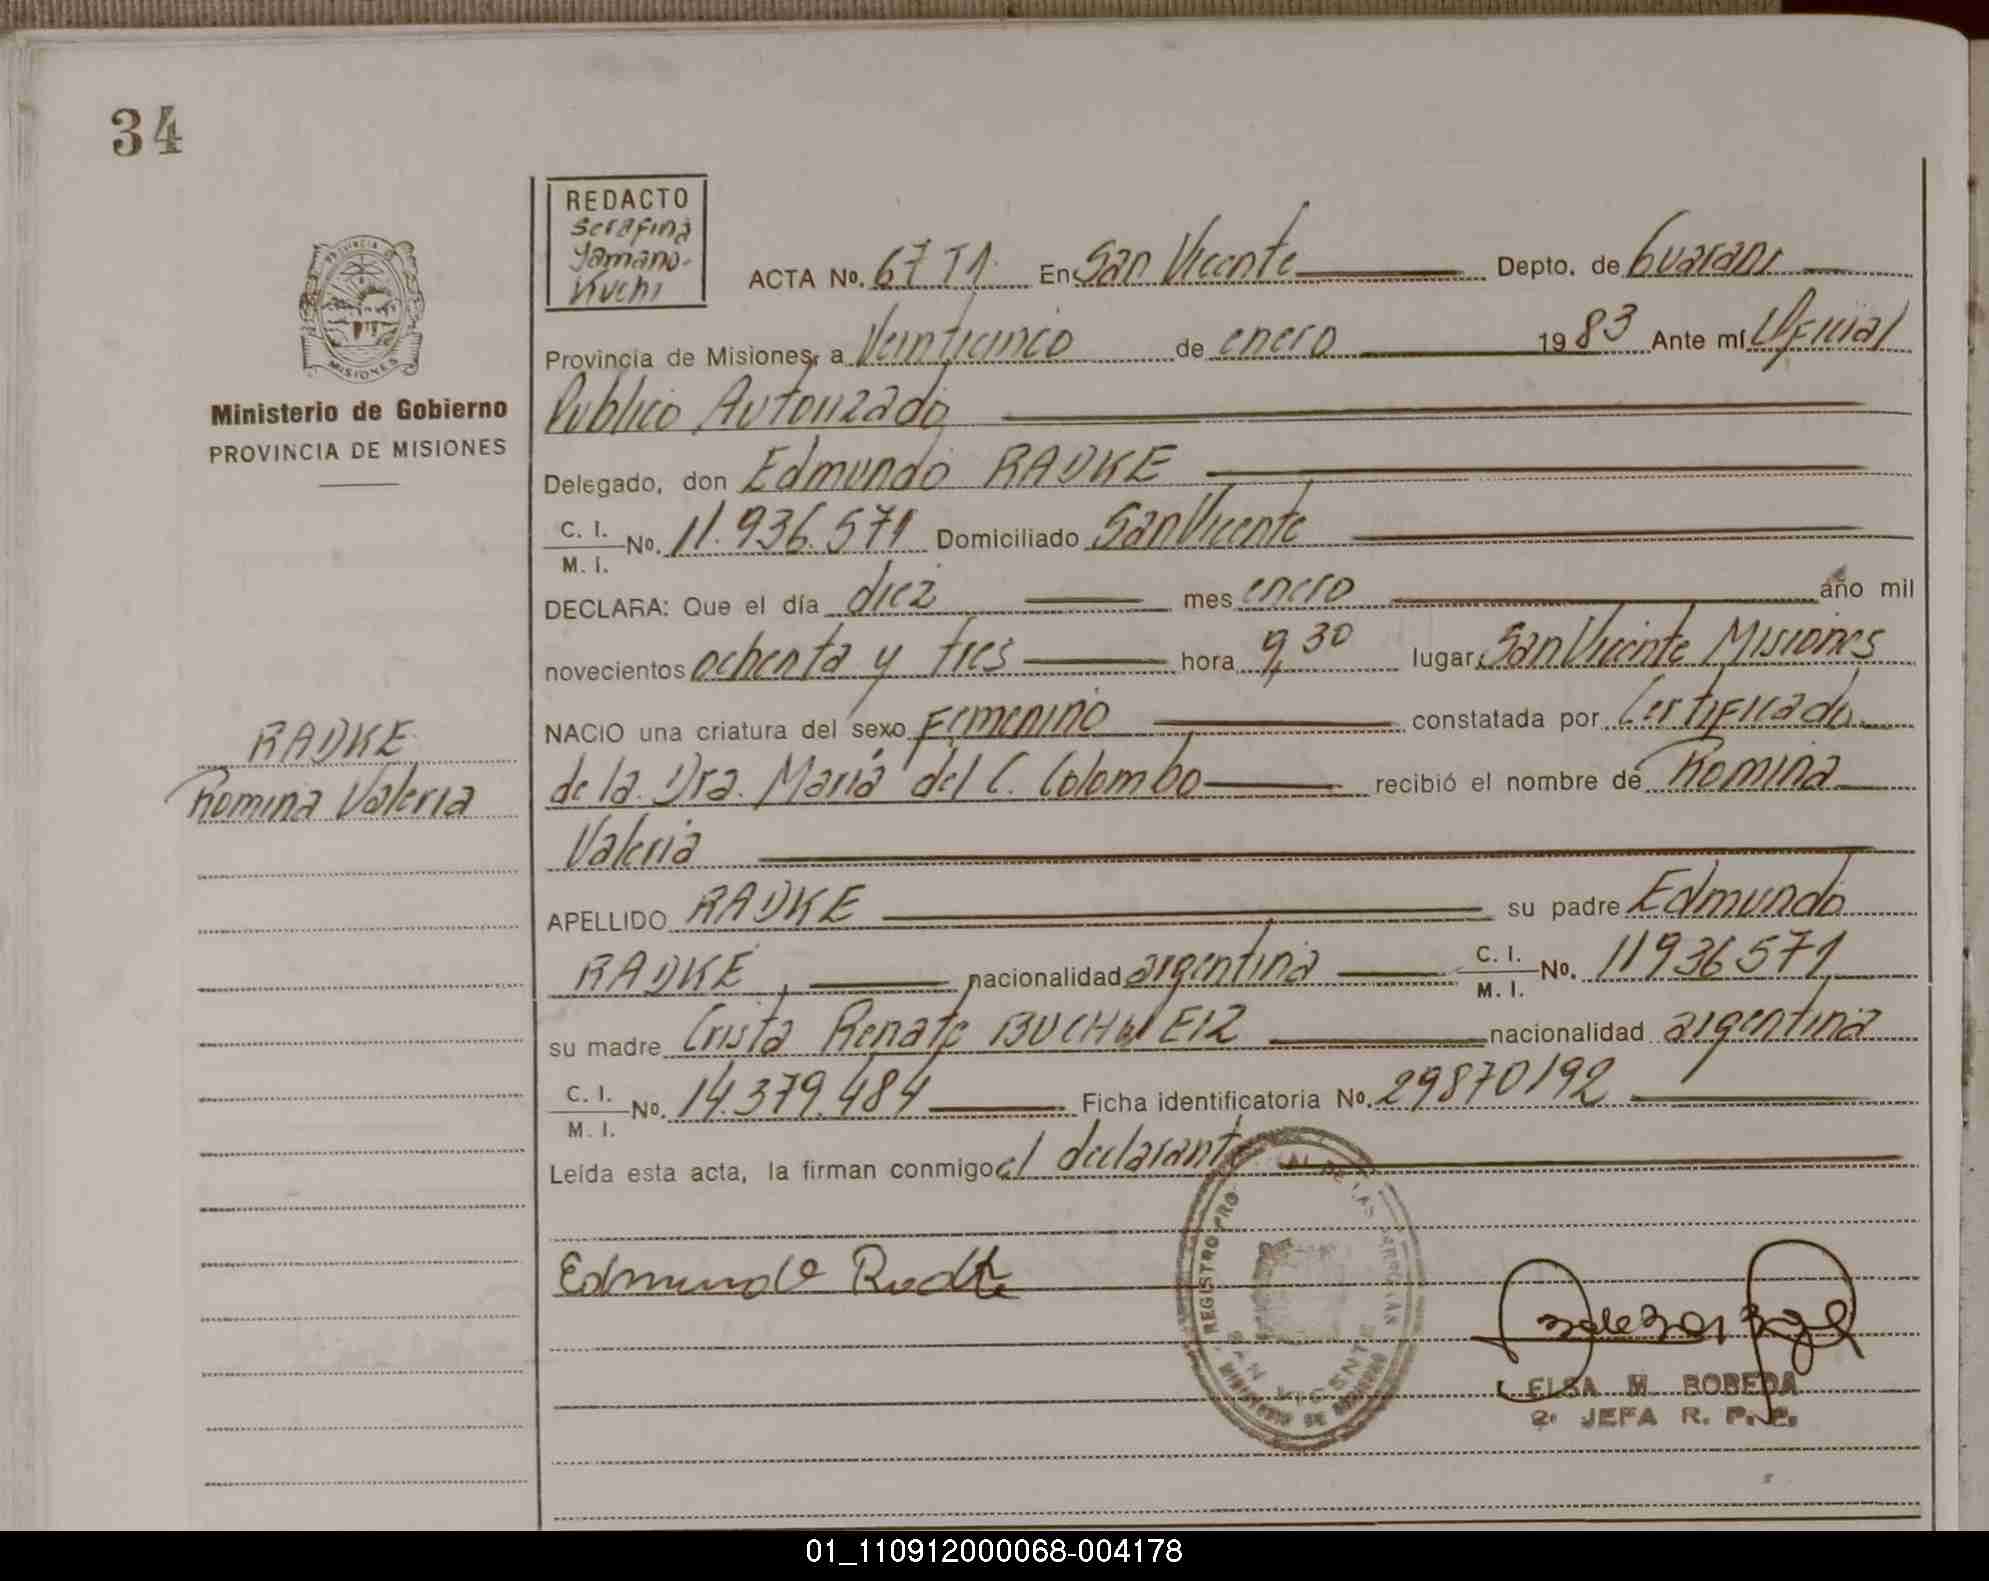 34
REDACTO
Serafina
Yamano-
Kuchi
ACTA No. 67 T1 En San Vicente Depto. de Guarani
Provincia de Misiones, a Veinticinco de enero 1983 Ante mí Oficial
Publico Autorizado
Ministerio de Gobierno
PROVINCIA DE MISIONES
MISIONES
Delegado, don Edmundo RADKE
C. I.
M. I. No. 11.936.571 Domiciliado San Vicente
DECLARA: Que el día diez mes enero año mil
novecientos ochenta y tres hora 9,30 lugar San Vicente Misiones
NACIO una criatura del sexo Femenino constatada por Certificado
de la Dra. María del C. Colombo recibió el nombre de Romina
Valeria
RADKE
Romina Valeria
APELLIDO RADKE su padre Edmundo
RADKE, nacionalidad argentina C. I.
M. I. No. 11936571
su madre Crista Renate BUCHWEIZ nacionalidad argentina
C. I.
M. I. No. 14.379.484 Ficha identificatoria No. 29870192
Leída esta acta, la firman conmigo el declarante
Edmundo Radke
REGISTRO PRO AL DE LAS PERSONAS
SAN VICENTE
MINISTERIO DE GOBIERNO
ELSA M. BOBEDA
2º JEFA R. P. P.
01_110912000068-004178